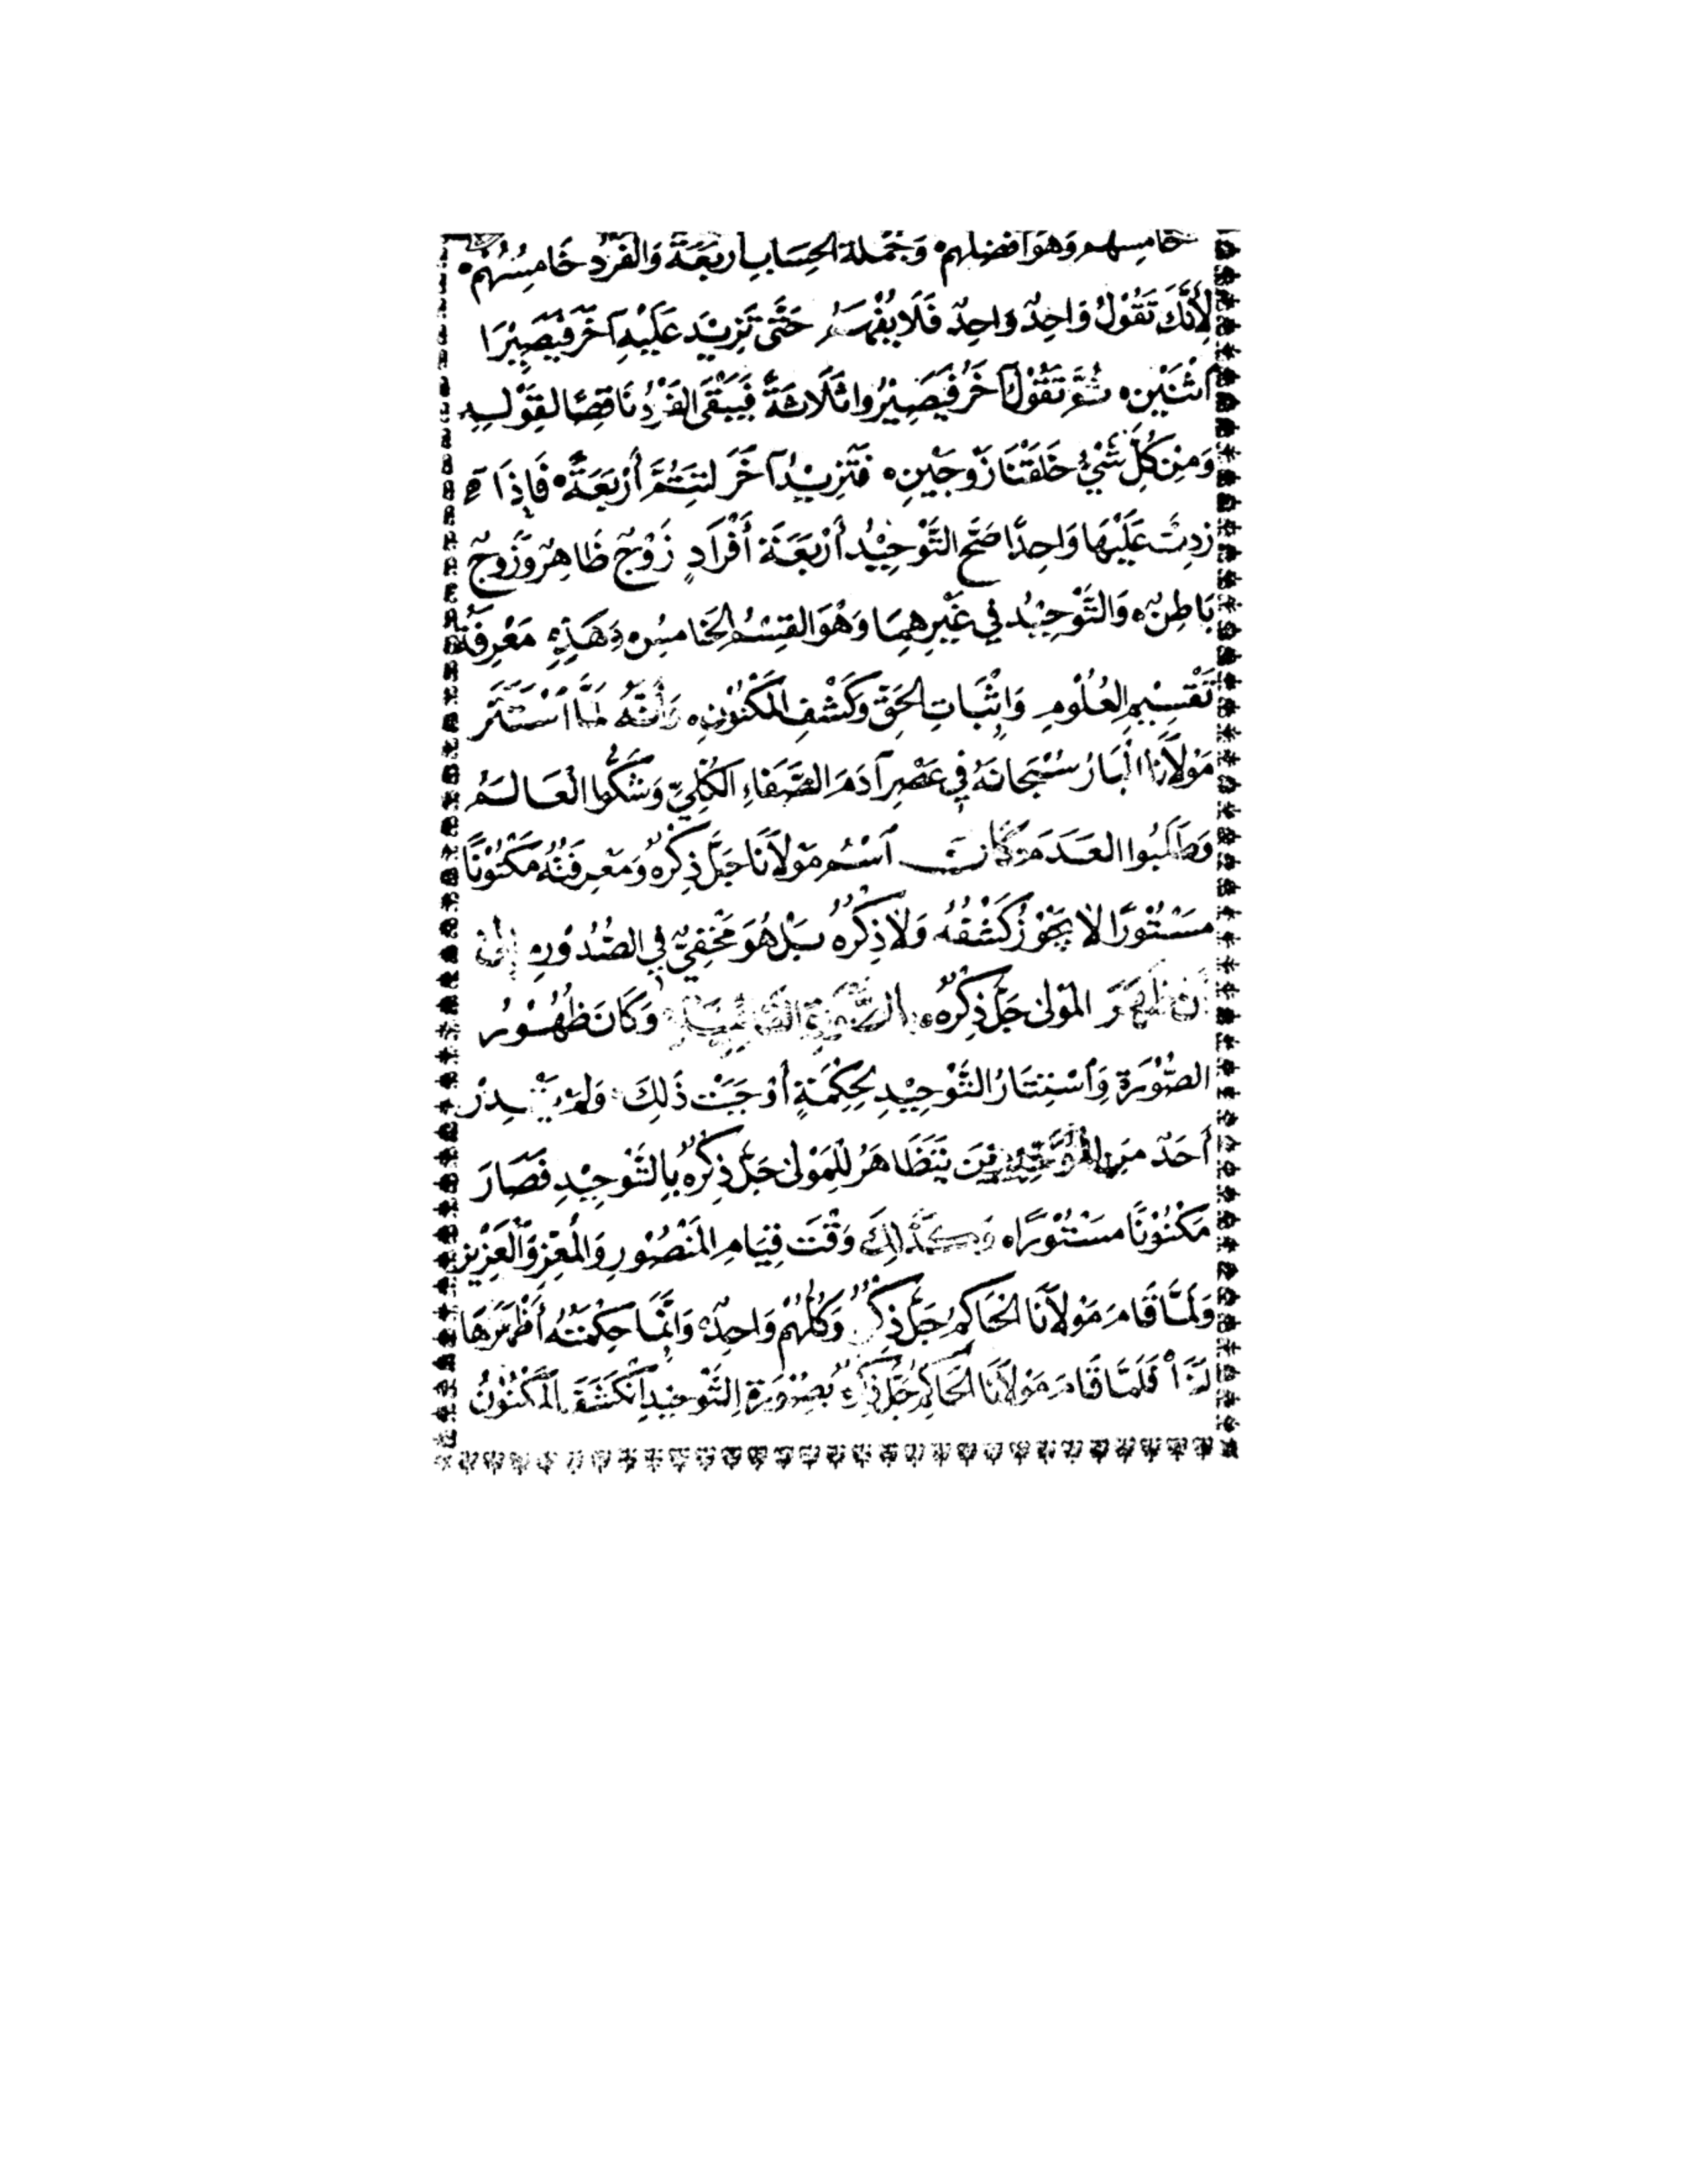 خَامِسهم وَهوَ افضلهم ۰ وَجُمْلة الحِسَابِ اربَعَةٌ وَالفَرْد خَامِسُهُمْ ۰
لِأَنَّكَ تَقُوْلُ وَاحِدٌ وَاحِدٌ فَلَا يُفْهَمُ حَتَّى تَزِيْدَ عَلَيْهِ آخَرَ فَيَصِيْرَا
اَثْنَيْنِ ۰ ثُمَّ تَقُوْلُ آخَرُ فَيَصِيْرُوا ثَلَاثَةً فَيَبْقَى الفَرْدُ نَاقِصًا لِقَوْلِهِ
وَمِنْ كُلِّ شَيْءٍ خَلَقْنَا زَوْجَيْنِ ۰ فَتَزِيْدُ آخَرَ لِتَتِمَّ أَرْبَعَةً ۰ فَإِذَا
زِدتَّ عَلَيْهَا وَاحِدًا صَحَّ التَّوْحِيْدُ أَرْبَعَة أَفْرَادٍ زَوْجٌ ظَاهِرٌ وَزَوجٌ
بَاطِنٌ ۰ وَالتَّوْحِيْدُ فِي غَيْرِهِمَا وَهُوَ القِسْمُ الخَامِسُ ۰ وَهَذِهِ مَعْرِفَةُ
تَقْسِيْمِ العُلُوْمِ وَإِثْبَاتِ الحَقِّ وَكَشْفِ المَكْنُوْنِ ۰ وَأَنَّهُ لَمَّا اَسْتَتَر
مَوْلَانَا الْبَارُ سُبْحَانَهُ فِي عَصْرِ آدَمَ الصَّفَاءِ الكُلِّيِّ وَشَكُّوا الْعَالَمُ
وَطَلَبُوا العَدَمَ كَانَ اَسْمُ مَوْلَانَا جَلَّ ذِكْرُهُ وَمَعْرِفَتُهُ مَكْنُوْنًا
مَسْتُوْرًا لَا يَجُوْزُ كَشْفُهُ وَلَا ذِكْرُهُ بَلْ هُوَ مَخْفِيٌّ فِي الصُّدُوْرِ إِلَى
أَنْ ظَهَرَ المَوْلَى جَلَّ ذِكْرُهُ وَكَانَ ظُهُوْرُ
الصُّوْرَةِ وَاسْتِتَارُ التَّوْحِيْدِ لِحِكْمَةٍ أَوْجَبَتْ ذَلِكَ وَلَمْ يَقْدِرْ
أَحَدٌ مِنَ المُوَحِّدِيْنَ يَتَظَاهَرُ لِلْمَوْلَى جَلَّ ذِكْرُهُ بِالتَّوْحِيْدِ فَصَارَ
مَكْنُوْنًا مَسْتُوْرًا ۰ وَكَذَلِكَ وَقْتَ قِيَامِ المَنْصُوْرِ وَالمُعِزِّ وَالعَزِيْزِ
وَلَمَّا قَامَ مَوْلَانَا الحَاكِمُ جَلَّ ذِكْرُهُ وَكُلُّهُمْ وَاحِدٌ ۰ وَإِنَّمَا حِكْمَتُهُ أَظْهَرَهَا
لَنَا فَلَمَّا قَامَ مَوْلَانَا الحَاكِمُ جَلَّ ذِكْرُهُ بِصُوْرَةِ التَّوْحِيْدِ اَنْكَشَفَ المَكْنُوْنُ